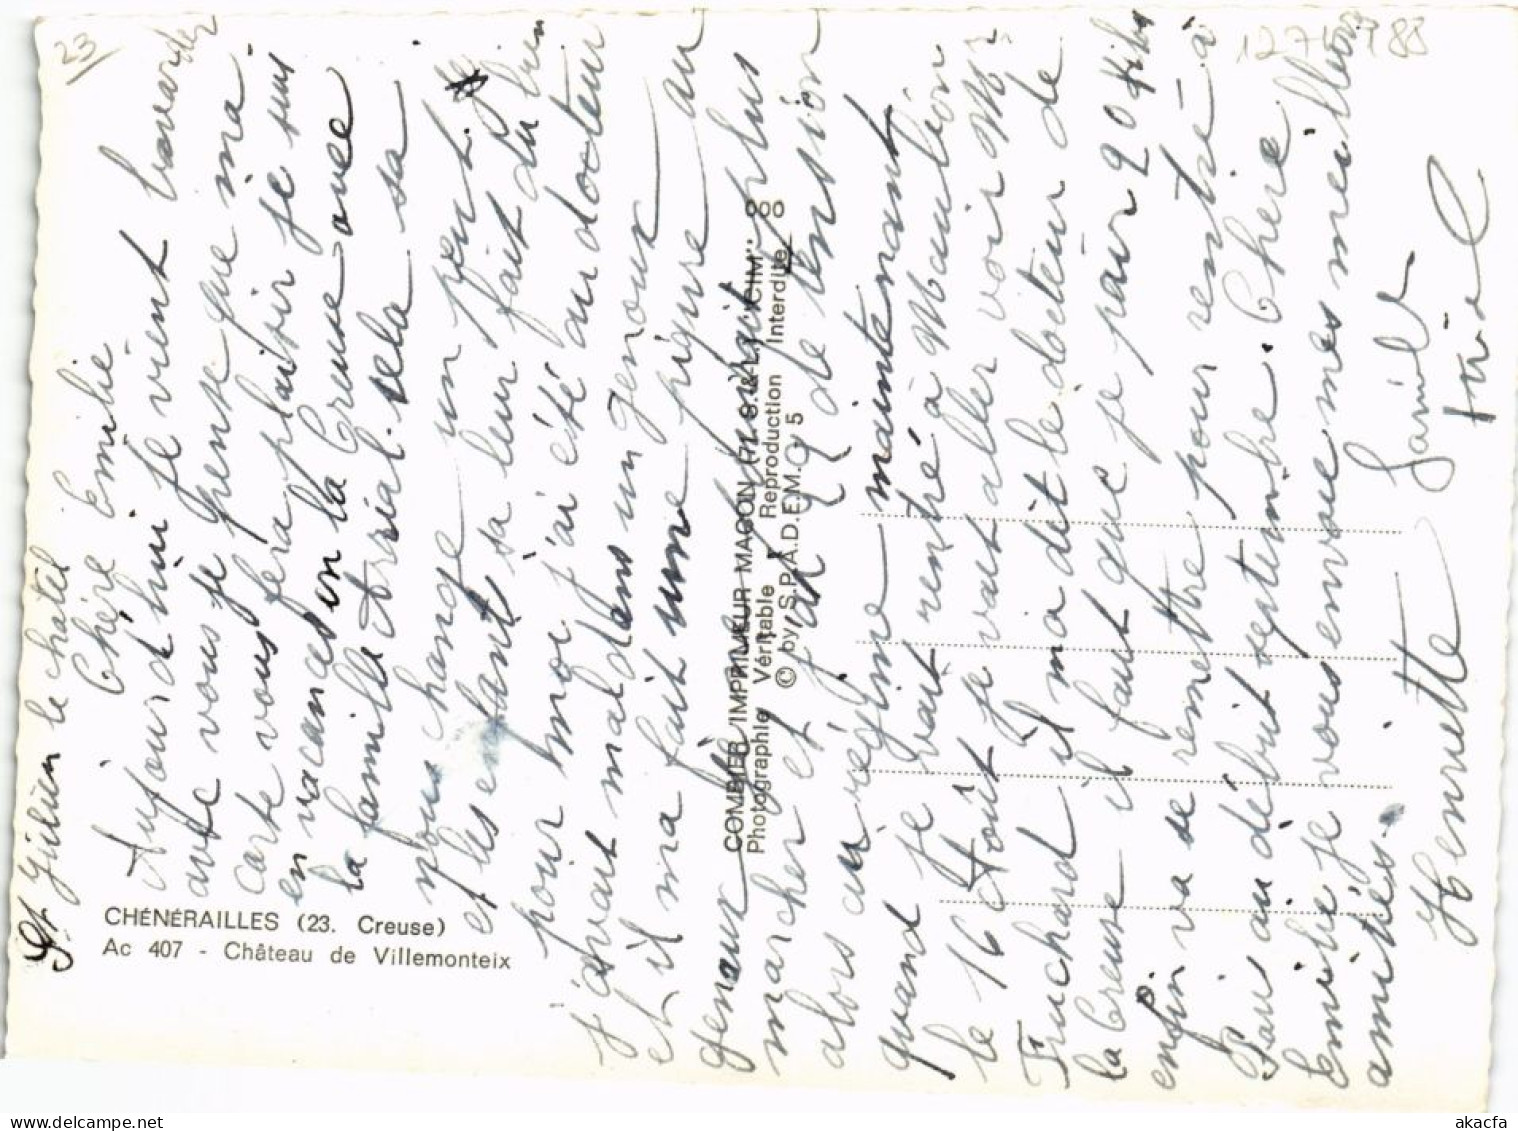 23
1275188
St Julien le chatel
Chère Emilie
Aujourd'hui je vient bavarder
avec vous je pense que ma
carte vous fera plaisir je suis
en vacances en la Creuse avec
la famille Arrial. sela sa
nous change un peut. je
et les enfants sa leur fait du bien
pour moi j'ai été au docteur
j'avait mal dans un genoux
et il ma fait une piqure au
genoux je ne pouvait plus
marcher et j'ai 19 de tension
alors au régime maintenant
quand je vait rentré à Mauléon
le 16 Août je vait aller voir Mr
Truchard il m'a dit le docteur de
la Creuse il faut que je pair 20 Kilos
enfin va se remettre pour rentré à
Paris au début septembre. Chère
Emilie je vous envoie mes meilleurs
amitiés.
Famille
Henriette
CHÉNÉRAILLES (23. Creuse)
Ac 407 - Château de Villemonteix
COMBIER IMPRIMEUR MACON (71. S.-&-L.) "CIM"
Photographie Véritable Reproduction Interdite
© by S.P.A.D.E.M. - 5
akacfa